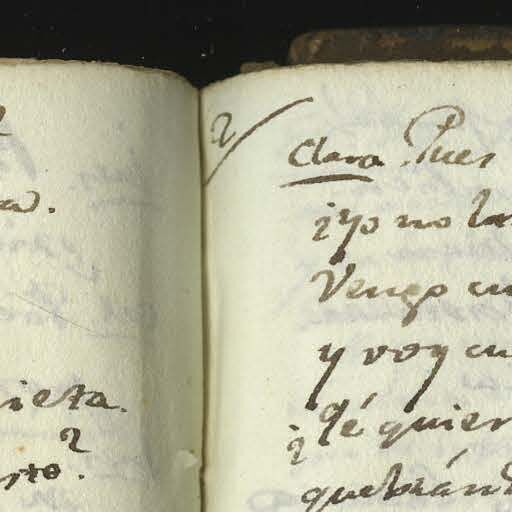 ieta.
2
Clara. Pues
¿yo no la
Vengo cu
y voy cu
¿Qé quier
quebránd